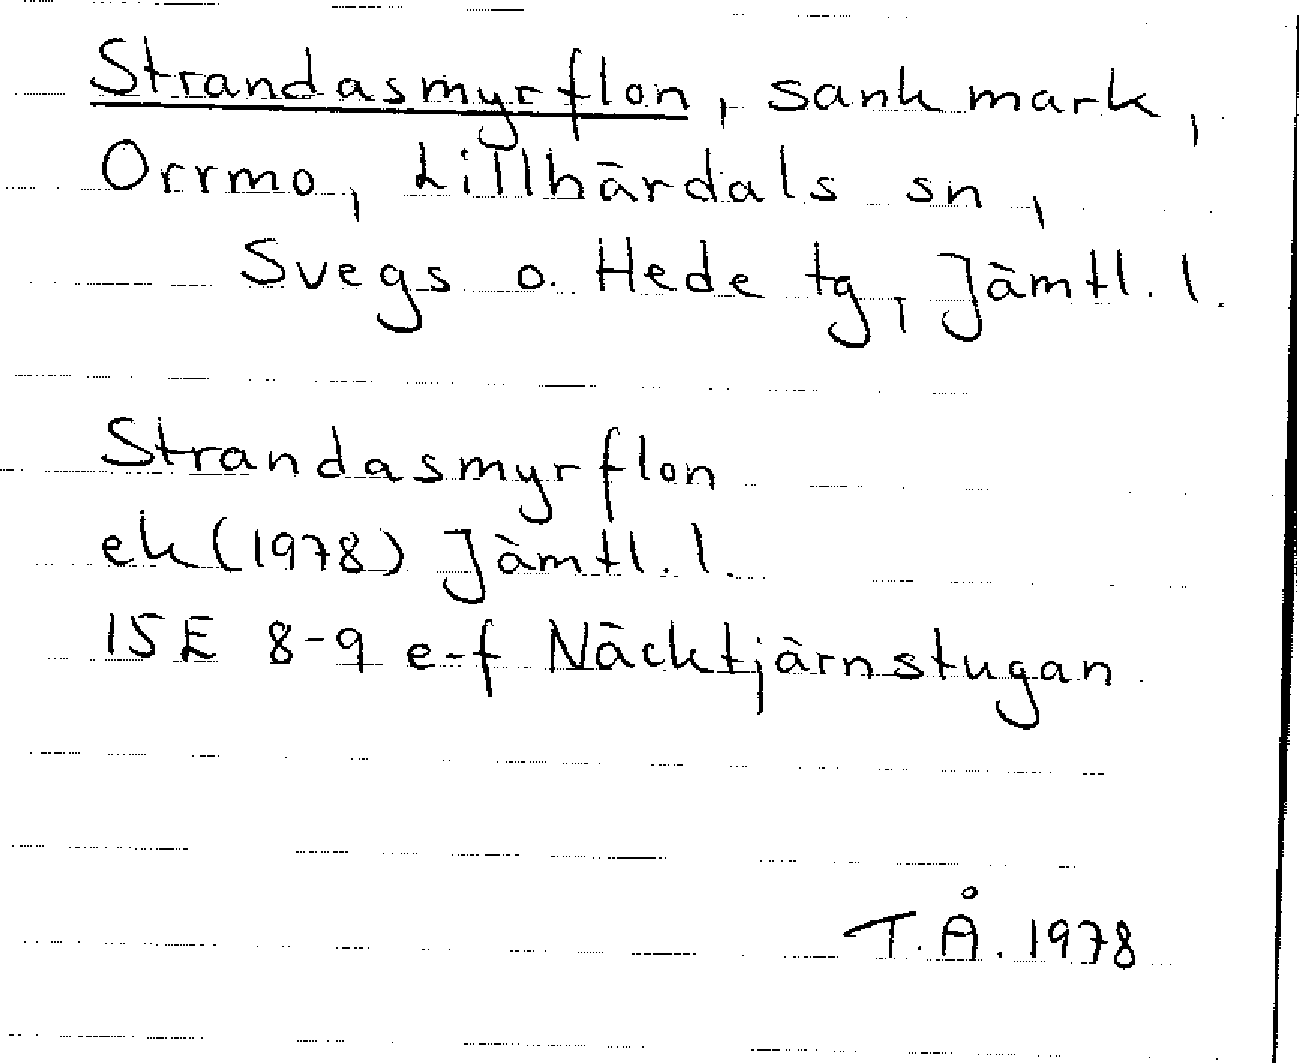 Strandasmyrflon, sank mark,
Orrmo, Lillhärdals sn,
Svegs o. Hede tg, Jämtl. l.
Strandasmyrflon
ek (1978) Jämtl. l.
15E 8-9 e-f Näcktjärnstugan
T.Å. 1978